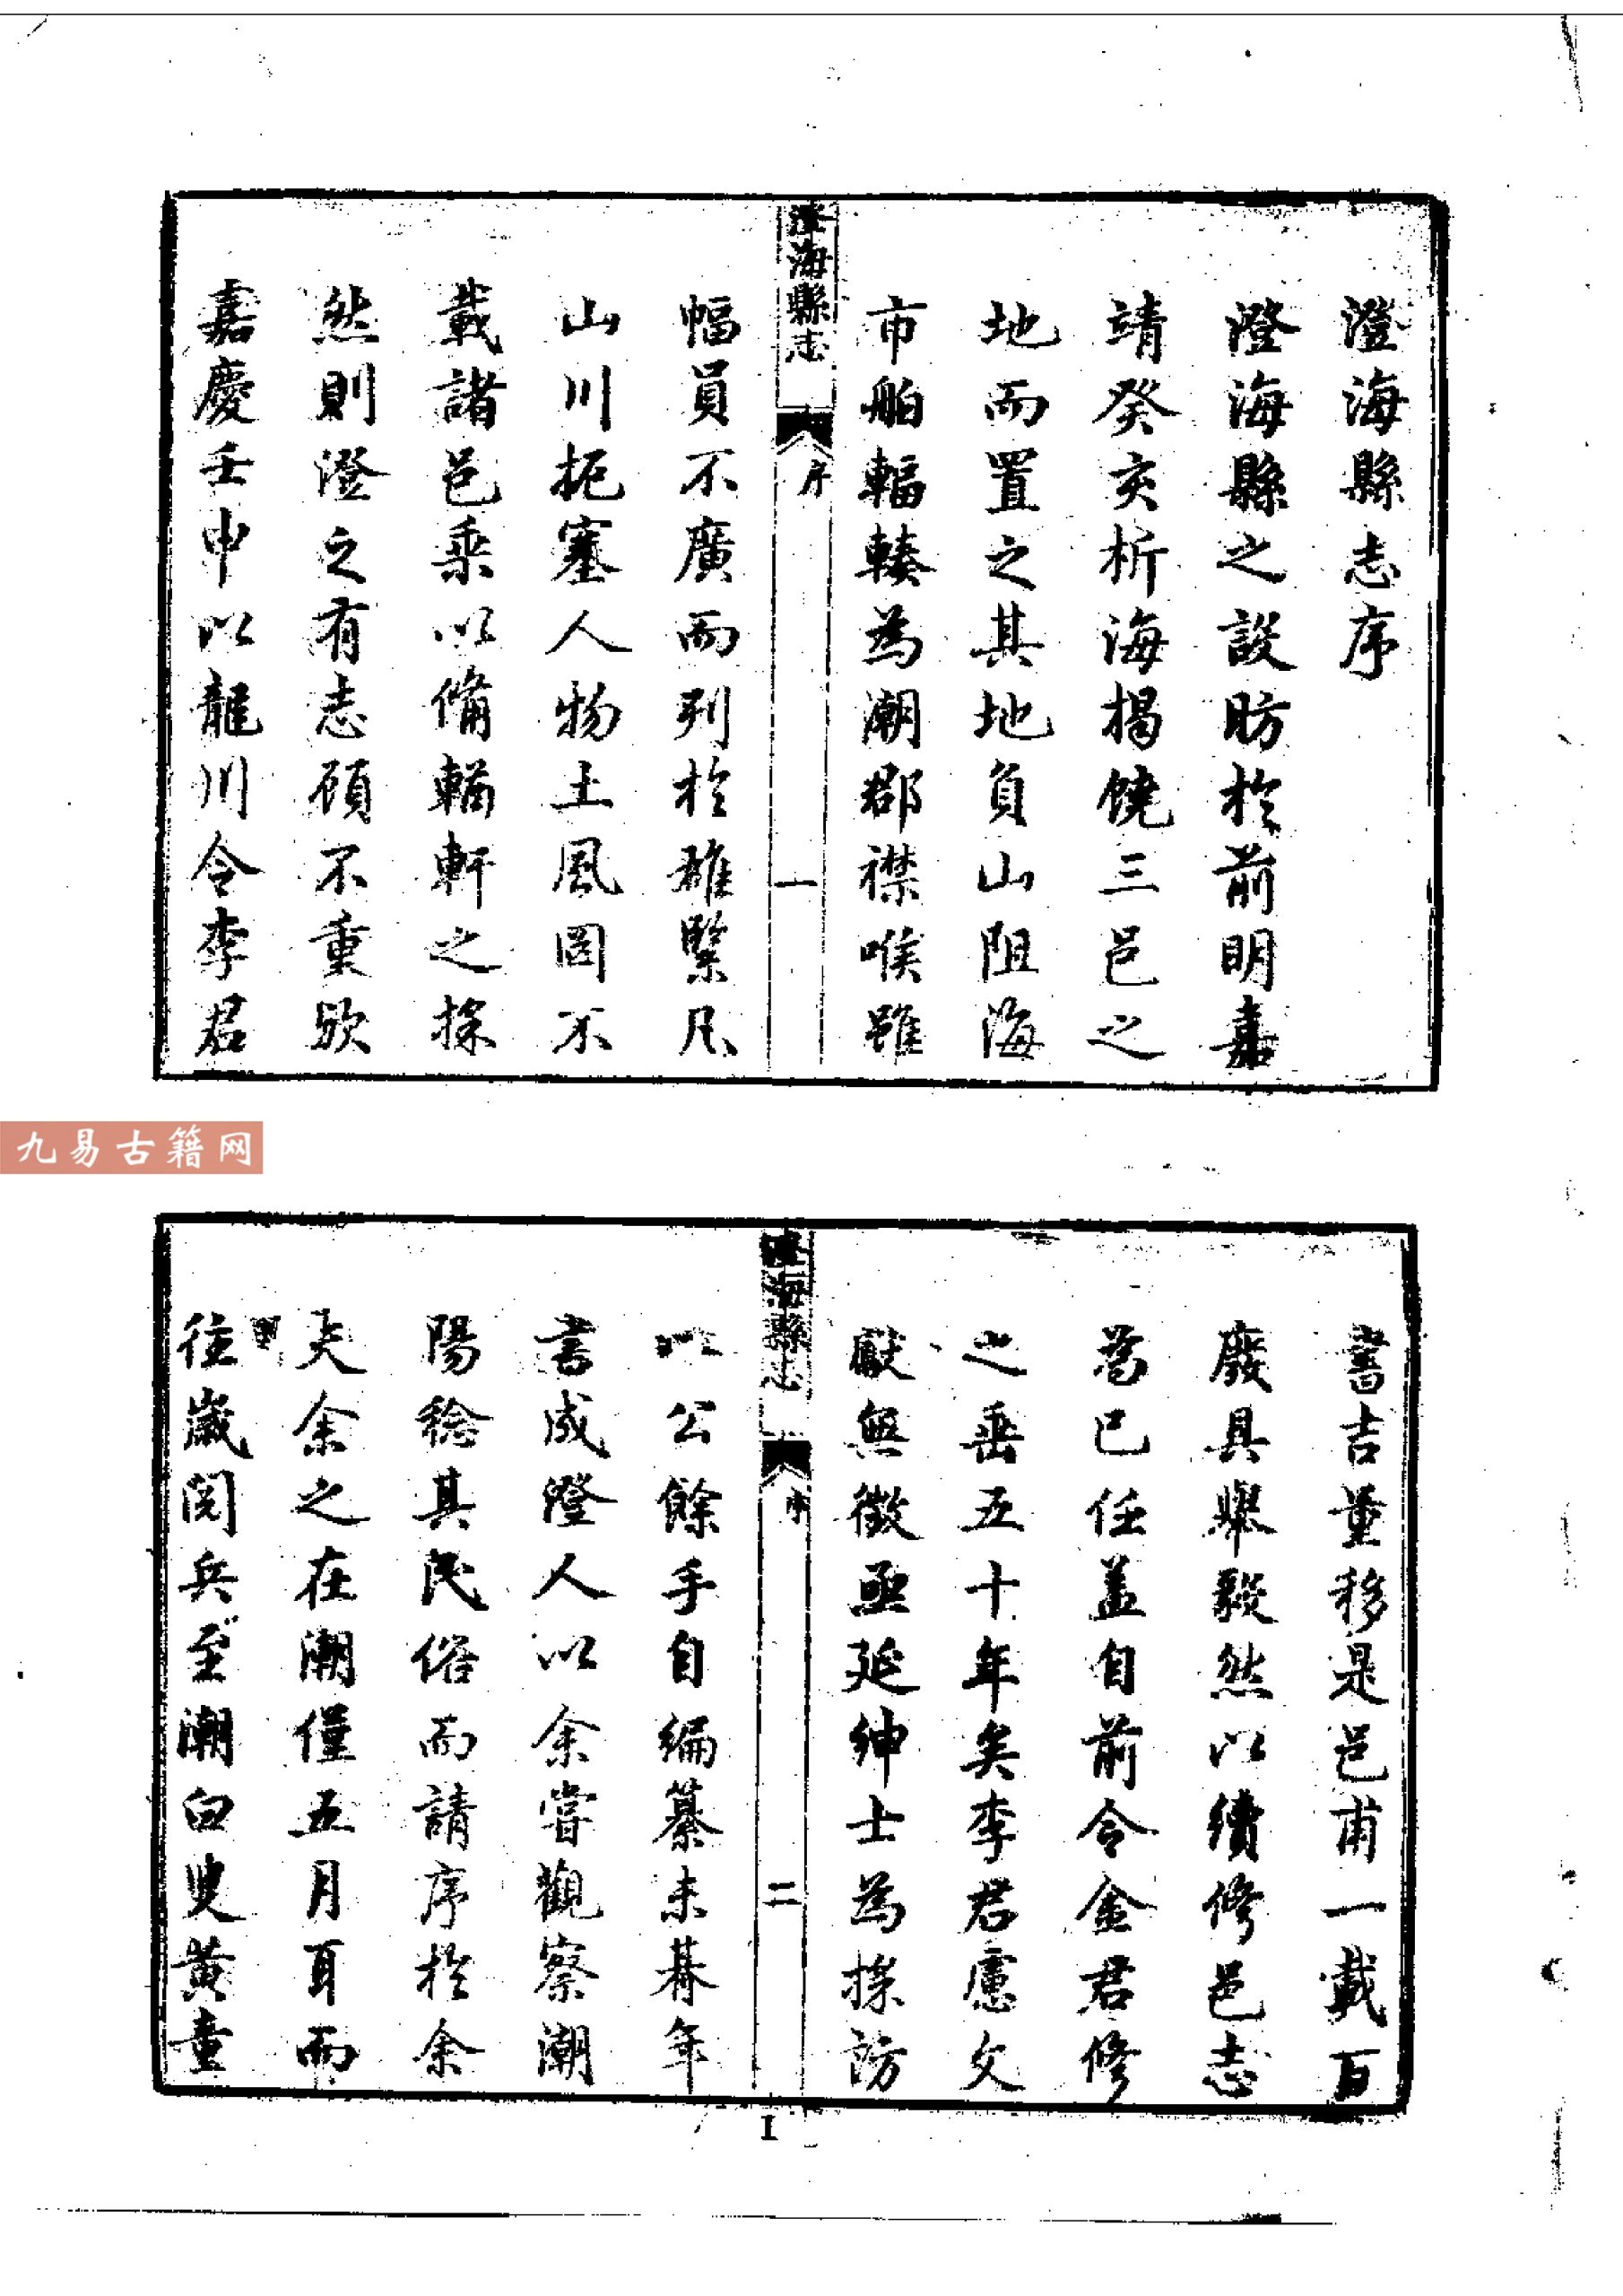 澄海縣志序
澄海縣之設昉於前明嘉
靖癸亥析海揭饒三邑之
地而置之其地負山阻海
市舶輻輳為潮郡襟喉雖
澄海縣志 序 一
幅員不廣而列於雄緊凡
山川扼塞人物土風罔不
載諸邑乘以備輶軒之採
然則澄之有志顧不重歟
嘉慶壬申以龍川令李君
九易古籍网
書吉量移是邑甫一載百
廢具舉毅然以續修邑志
為已任蓋自前令金君修
之垂五十年矣李君慮文
獻無徵亟延紳士為採訪
澄海縣志 序 二
以公餘手自編纂未朞年
書成澄人以余嘗觀察潮
陽稔其民俗而請序於余
夫余之在潮僅五月耳而
往歲閱兵至潮白叟黄童
1